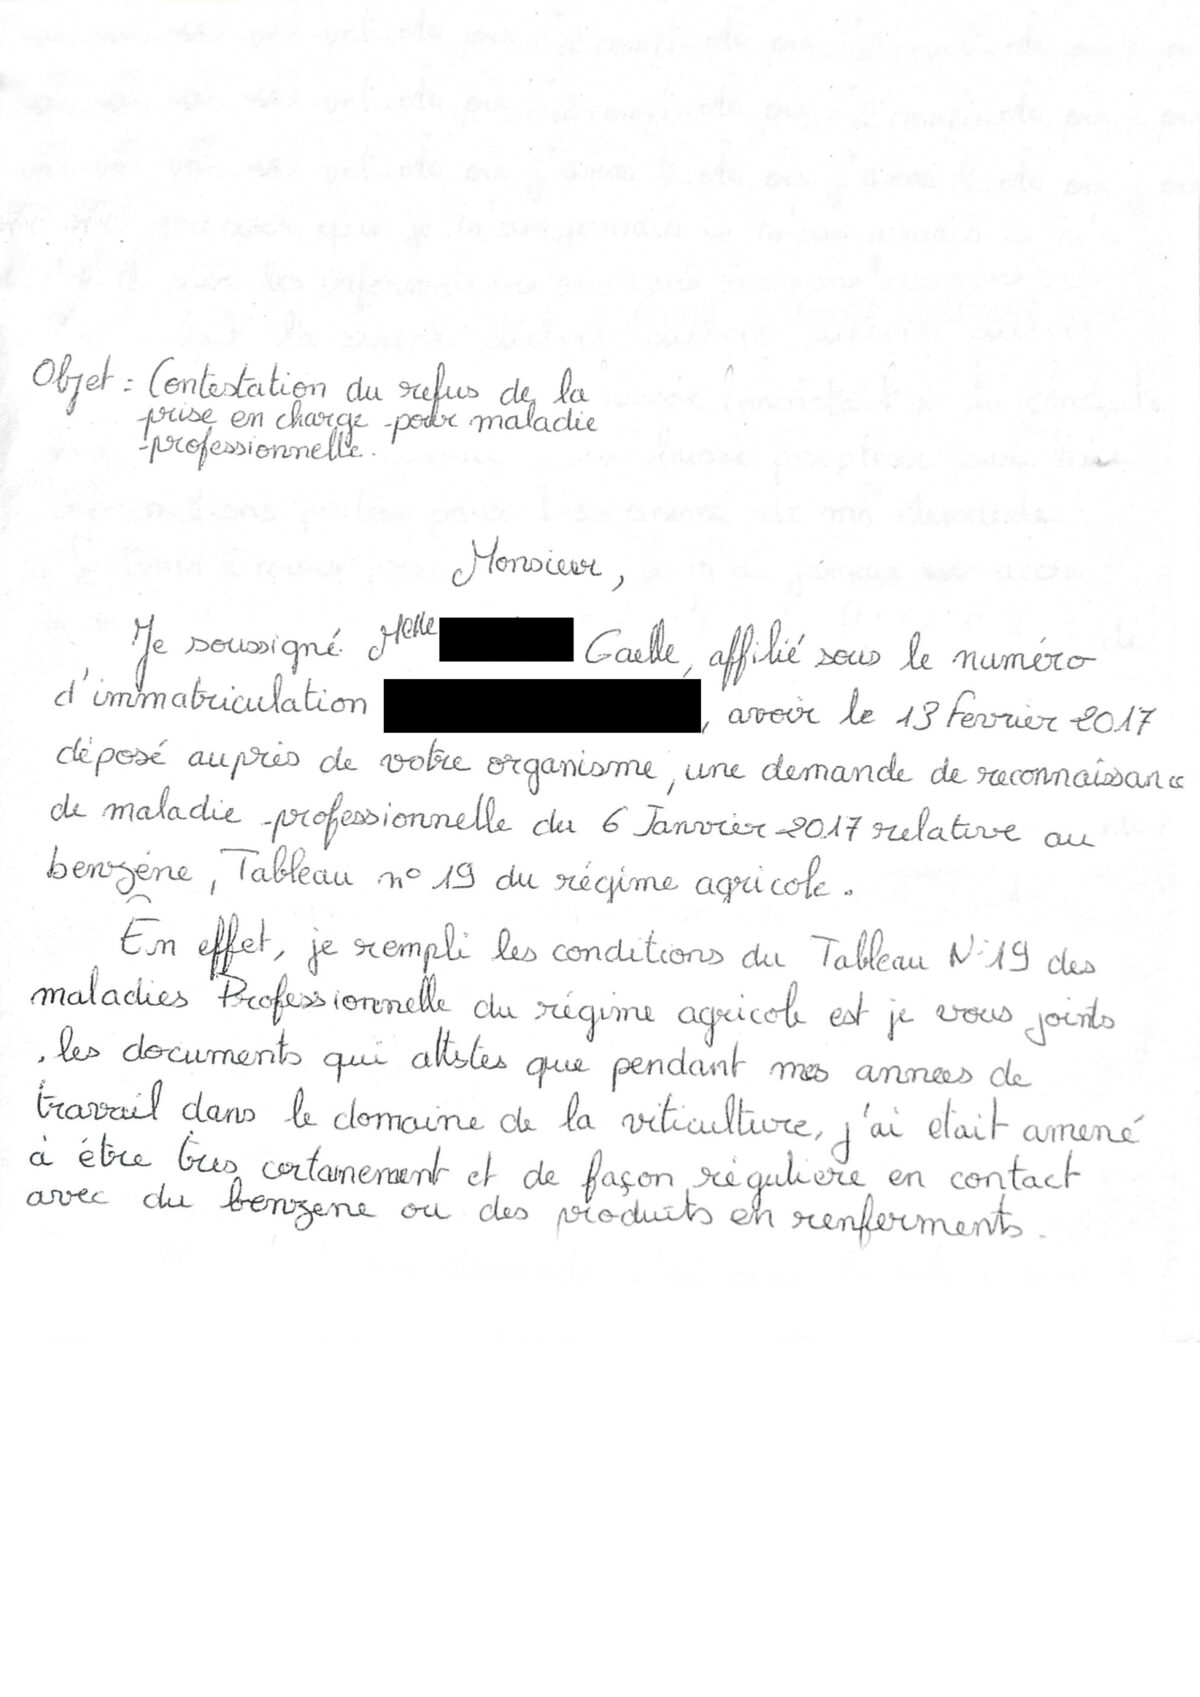 Objet : Contestation du refus de la
prise en charge pour maladie
professionnelle.
Monsieur,
Je soussigné Melle Gaelle, affilié sous le numéro
d'immatriculation , avoir le 13 fevrier 2017
déposé auprès de votre organisme, une demande de reconnaissance
de maladie professionnelle du 6 Janvier 2017 relative au
benzéne, Tableau n° 19 du régime agricole.
En effet, je rempli les conditions du Tableau N°19 des
maladies Professionnelle du régime agricole est je vous joints
, les documents qui attstes que pendant mes annees de
travail dans le domaine de la viticulture, j'ai etait amené
à étre trés certainement et de façon réguliere en contact
avec du benzene ou des produits en renferments.